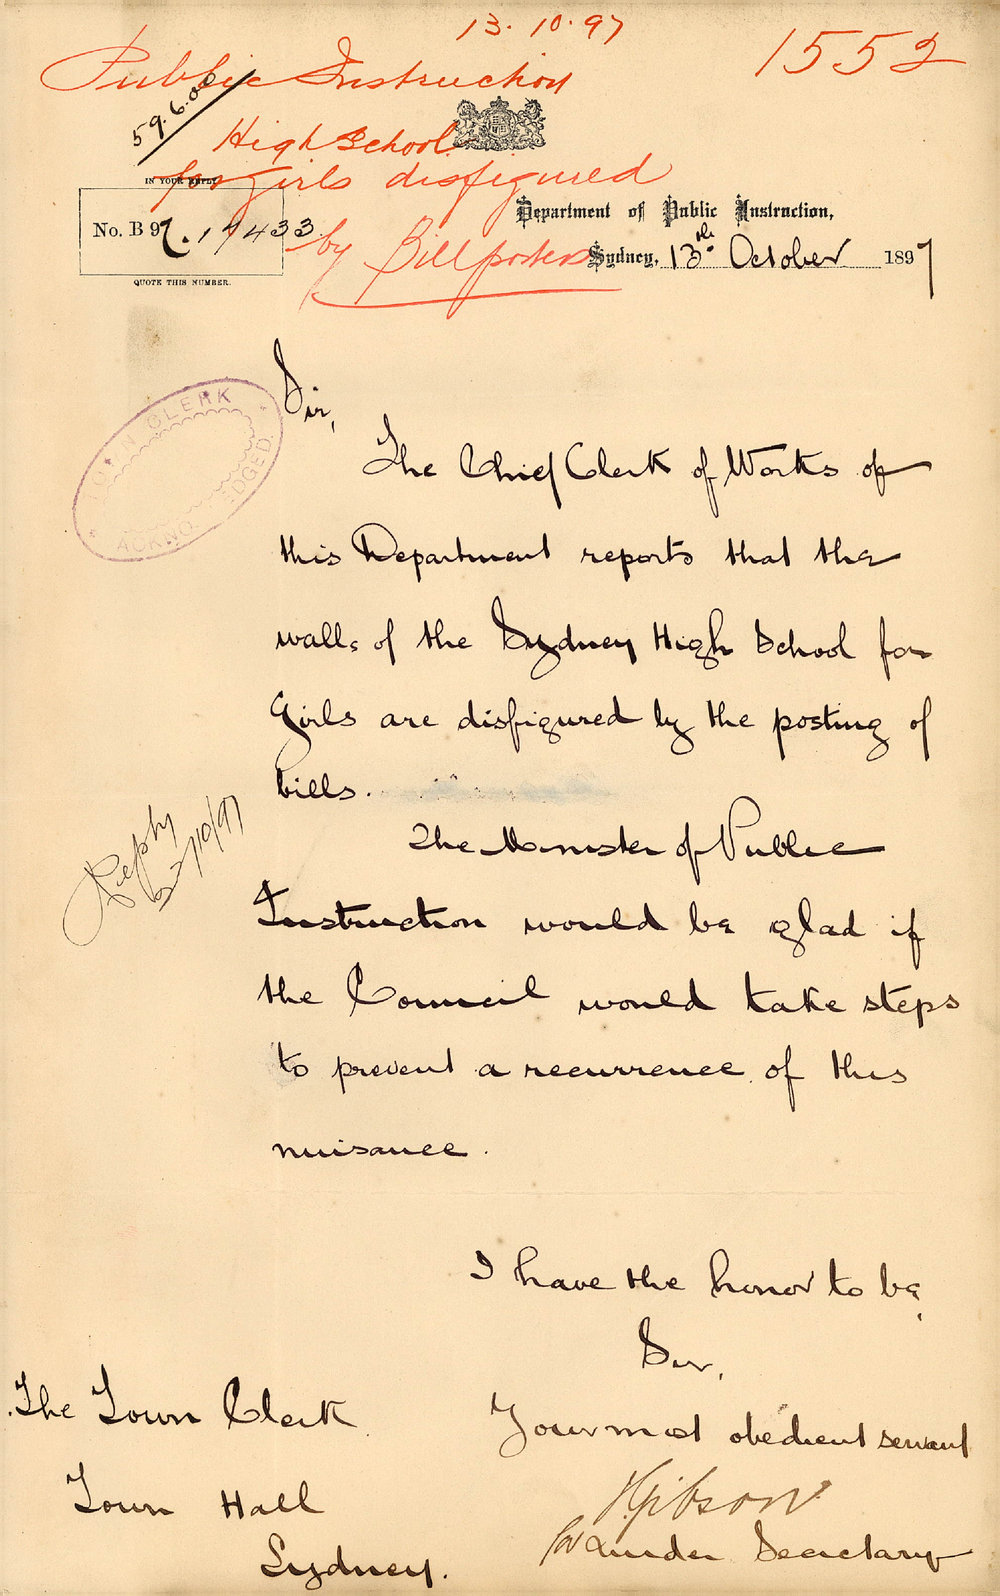 13.10.97
1552
Public Instruction
59.6.00
High School
for girls disfigured
by Billposters
IN YOUR REPLY
No. B 97.19433
QUOTE THIS NUMBER.
Department of Public Instruction,
Sydney, 13th October 1897
TOWN CLERK
ACKNOWLEDGED
Sir,
The Chief Clerk of Works of
this Department reports that the
walls of the Sydney High School for
Girls are disfigured by the posting of
bills.
Reply
/10/97
The Minister of Public
Instruction would be glad if
the Council would take steps
to prevent a recurrence of this
nuisance.
I have the honor to be,
Sir,
Your most obedient servant
Gibson
for Under Secretary
The Town Clerk
Town Hall
Sydney.